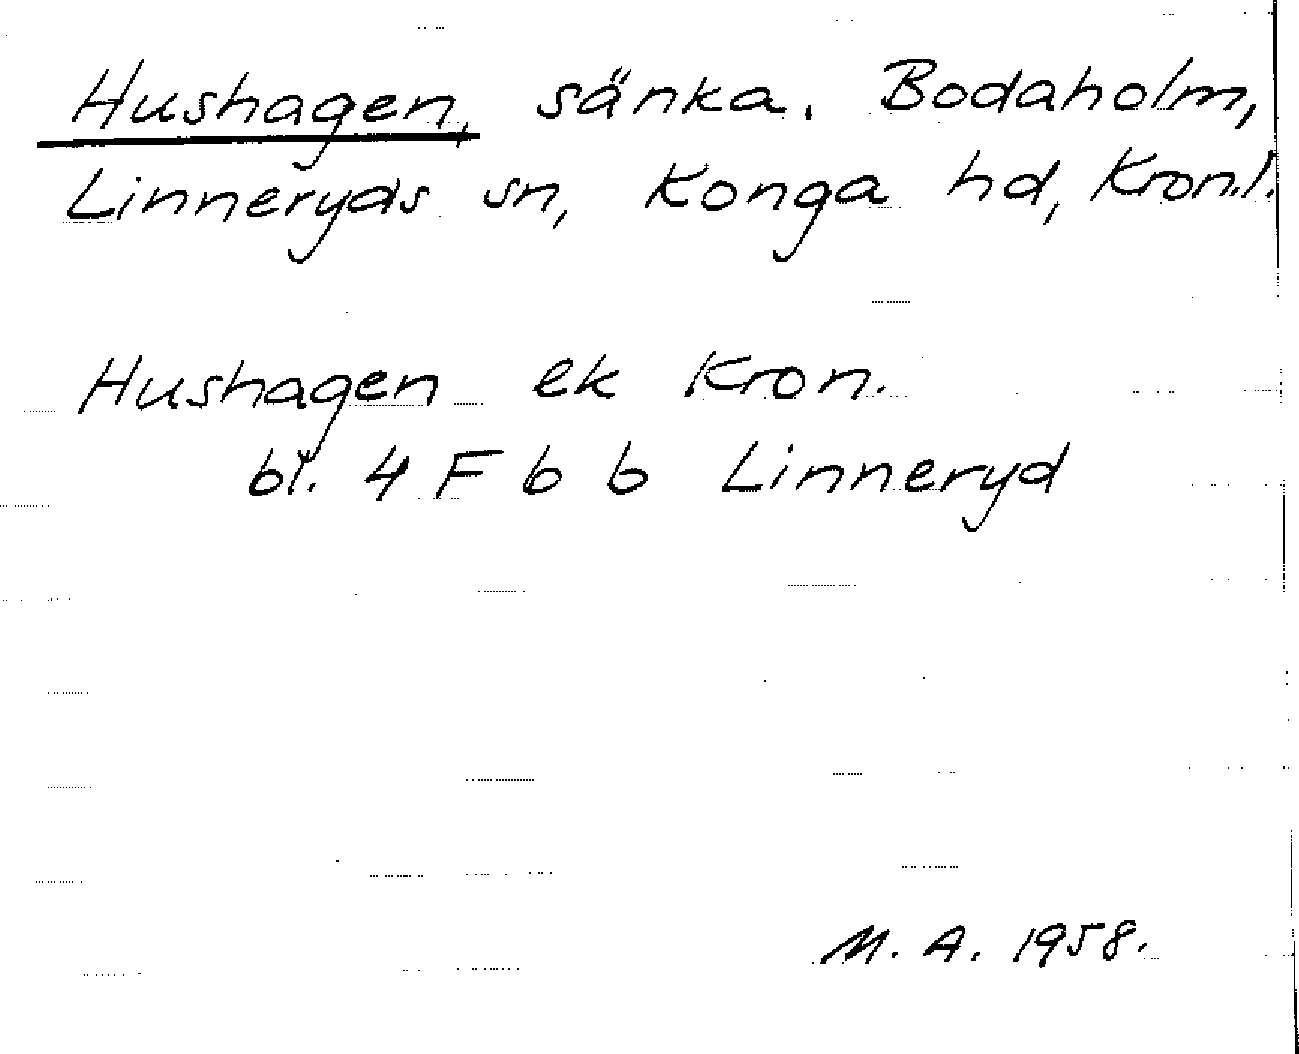 Hushagen, sänka. Bodaholm,
Linneryds sn, Konga hd, Kron.l.
Hushagen ek Kron.
bl. 4 F b b Linneryd
M. A. 1958.